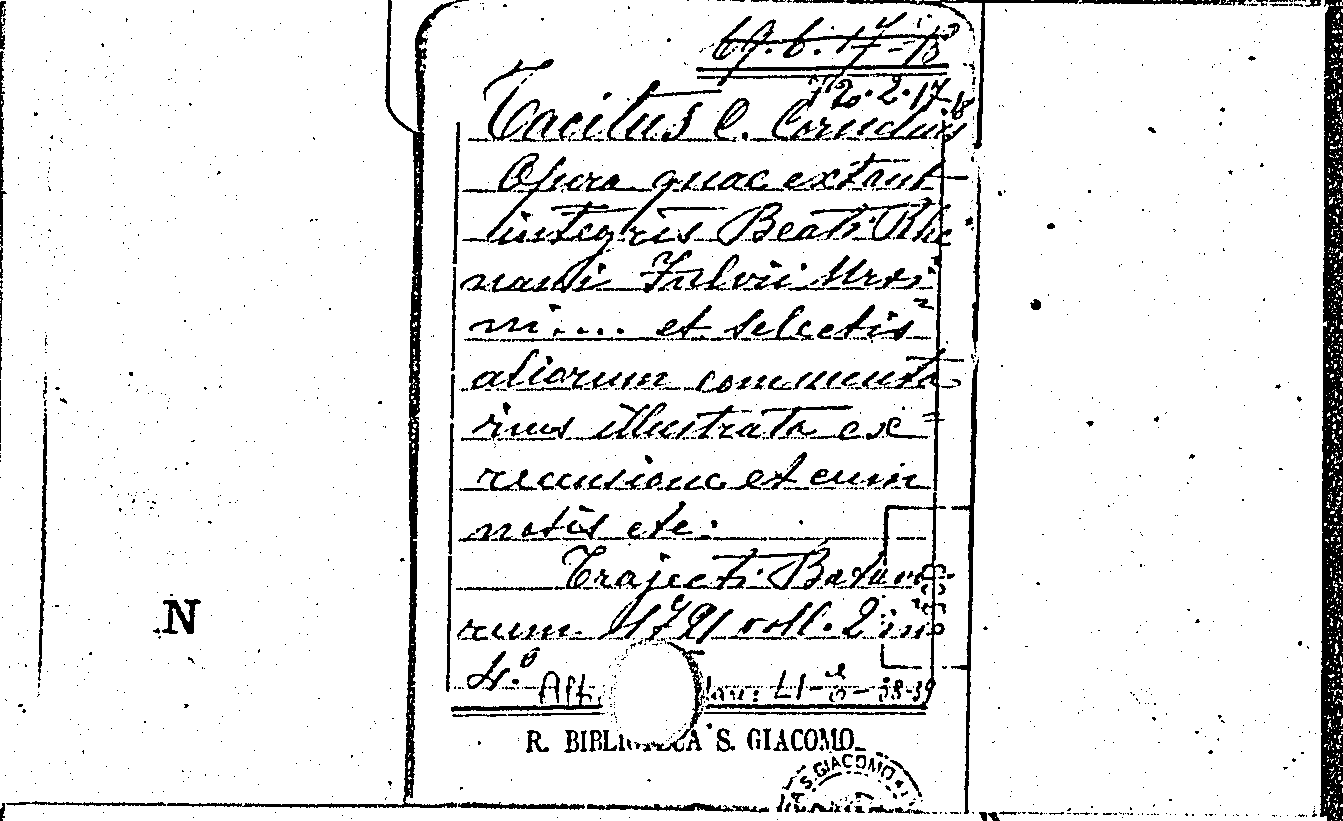 69.6.17-18
Tacitus C. Cornelius
Opera quae extant
integris Beati Rhe
nani Fulvii Ursi
ni.... et selectis
aliorum commenta
riis illustrata ex =
recensione et cum
notis etc:
Trajecti Batavo
rum 1721 voll. 2 in
4.º Aff. LI-3-38-39
R. BIBLIOTECA S. GIACOMO
S. GIACOMO
N